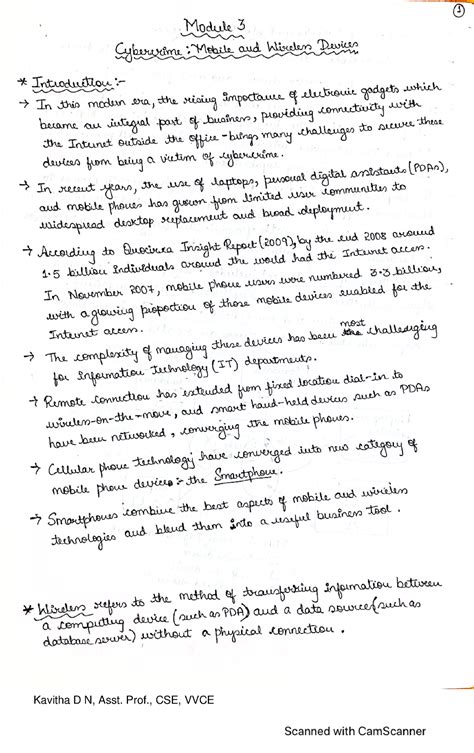 1
Module 3
Cybercrime : Mobile and Wireless Devices
* Introduction :-
→ In this modern era, the rising importance of electronic gadgets which
became an integral part of business, providing connectivity with
the Internet outside the office - brings many challenges to secure these
devices from being a victim of cybercrime.
→ In recent years, the use of laptops, personal digital assistants (PDAs),
and mobile phones has grown from limited user communities to
widespread desktop replacement and broad deployment.
→ According to Quocirca Insight Report (2009), by the end 2008 around
1.5 billion individuals around the world had the Internet access.
In November 2007, mobile phone users were numbered 3.3 billion,
with a growing proportion of those mobile devices enabled for the
Internet access.
→ The complexity of managing these devices has been most challenging
for Information Technology (IT) departments.
→ Remote connection has extended from fixed location dial-in to
wireless-on-the-move, and smart hand-held devices such as PDAs
have been networked, converging the mobile phones.
→ Cellular phone technology have converged into new category of
mobile phone device :- the Smartphone.
→ Smartphones combine the best aspects of mobile and wireless
technologies and blend them into a useful business tool.
* Wireless refers to the method of transferring information between
a computing device (such as PDA) and a data source (such as
database server) without a physical connection.
Kavitha D N, Asst. Prof., CSE, VVCE
Scanned with CamScanner